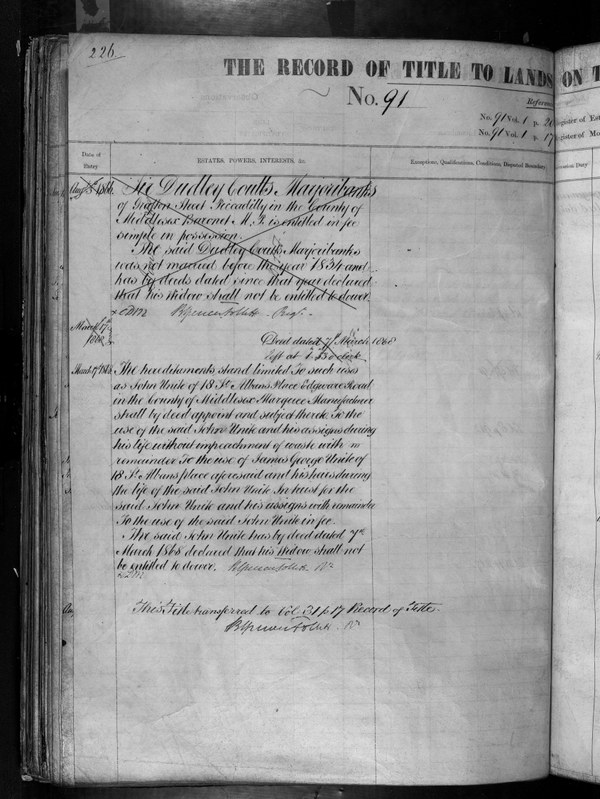 226
THE RECORD OF TITLE TO LANDS ON T
No. 91
Reference
No. 91 Vol. 1 p. 20 Register of Est
No. 91 Vol. 1 p. 17 Register of Mo
Date of Entry
ESTATES, POWERS, INTERESTS, &c.
Exceptions, Qualifications, Conditions, Disputed Boundary,
Sir Dudley Coutts Marjoribanks
of Grafton Street Piccadilly in the County of
Middlesex Baronet M.P. is entitled in fee
simple in possession.
The said Dudley Coutts Marjoribanks
was not married before the year 1834 and
has by deeds dated since that year declared
that his widow shall not be entitled to dower.
Deed dated 7th March 1868
Left at 1 o'clock
March 17th 1868
The hereditaments stand limited To such uses
as John Unite of 18 St. Albans Place Edgware Road
in the County of Middlesex Marquee Manufacturer
shall by deed appoint and subject thereto To the
use of the said John Unite and his assigns during
his life without impeachment of waste with
remainder To the use of James George Unite of
18 St. Albans place aforesaid and his heirs during
the life of the said John Unite In trust for the
said John Unite and his assigns with remainder
To the use of the said John Unite in fee.
The said John Unite has by deed dated 7th
March 1868 declared that his Widow shall not
be entitled to dower.
This Title transferred to Vol. 31 p 17 Record of Title.